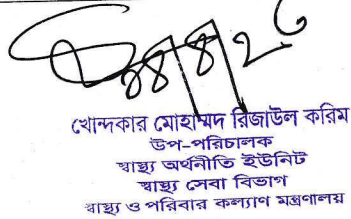 খোন্দকার মোহাম্মদ রিজাউল করিম
উপ-পরিচালক
স্বাস্থ্য অর্থনীতি ইউনিট
স্বাস্থ্য সেবা বিভাগ
স্বাস্থ্য ও পরিবার কল্যাণ মন্ত্রণালয়